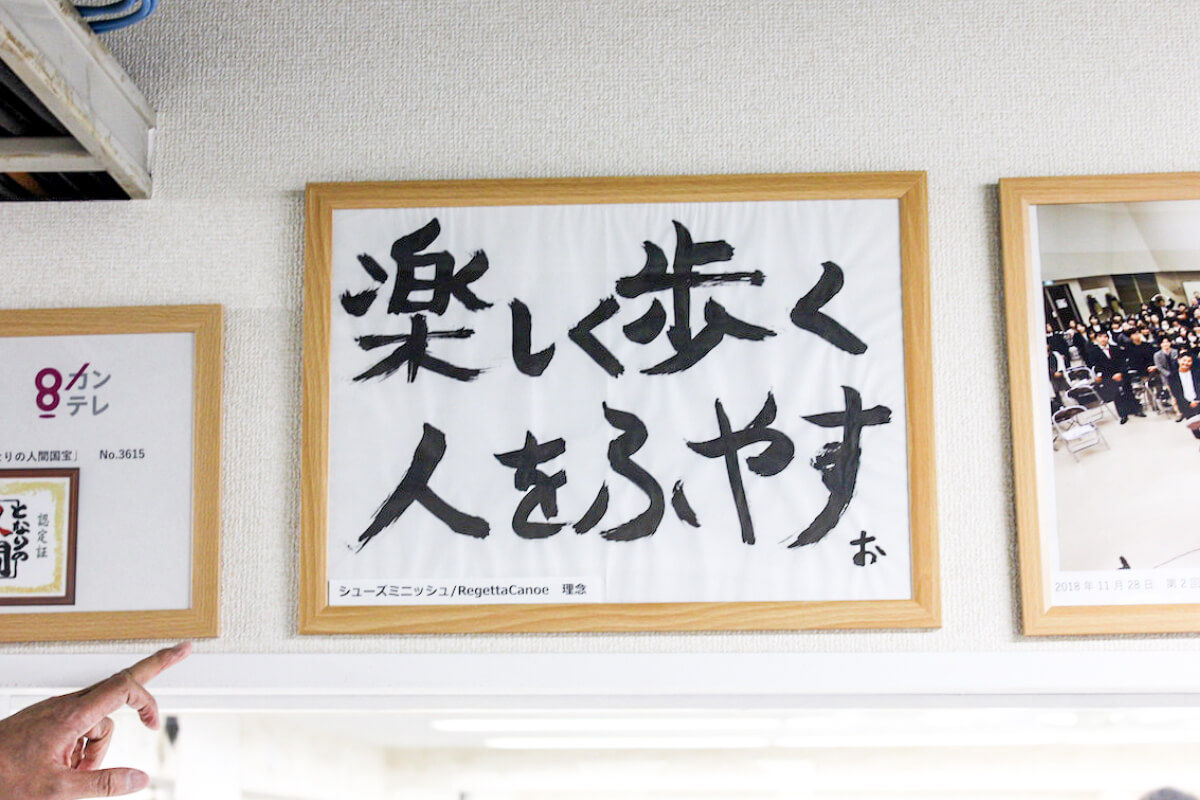 カン
テレ
りの人間国宝」 No.3615
認定証
となりの
人間
楽しく歩く
人をふやす
お
シューズミニッシュ/RegettaCanoe 理念
2018年11月28日 第2回